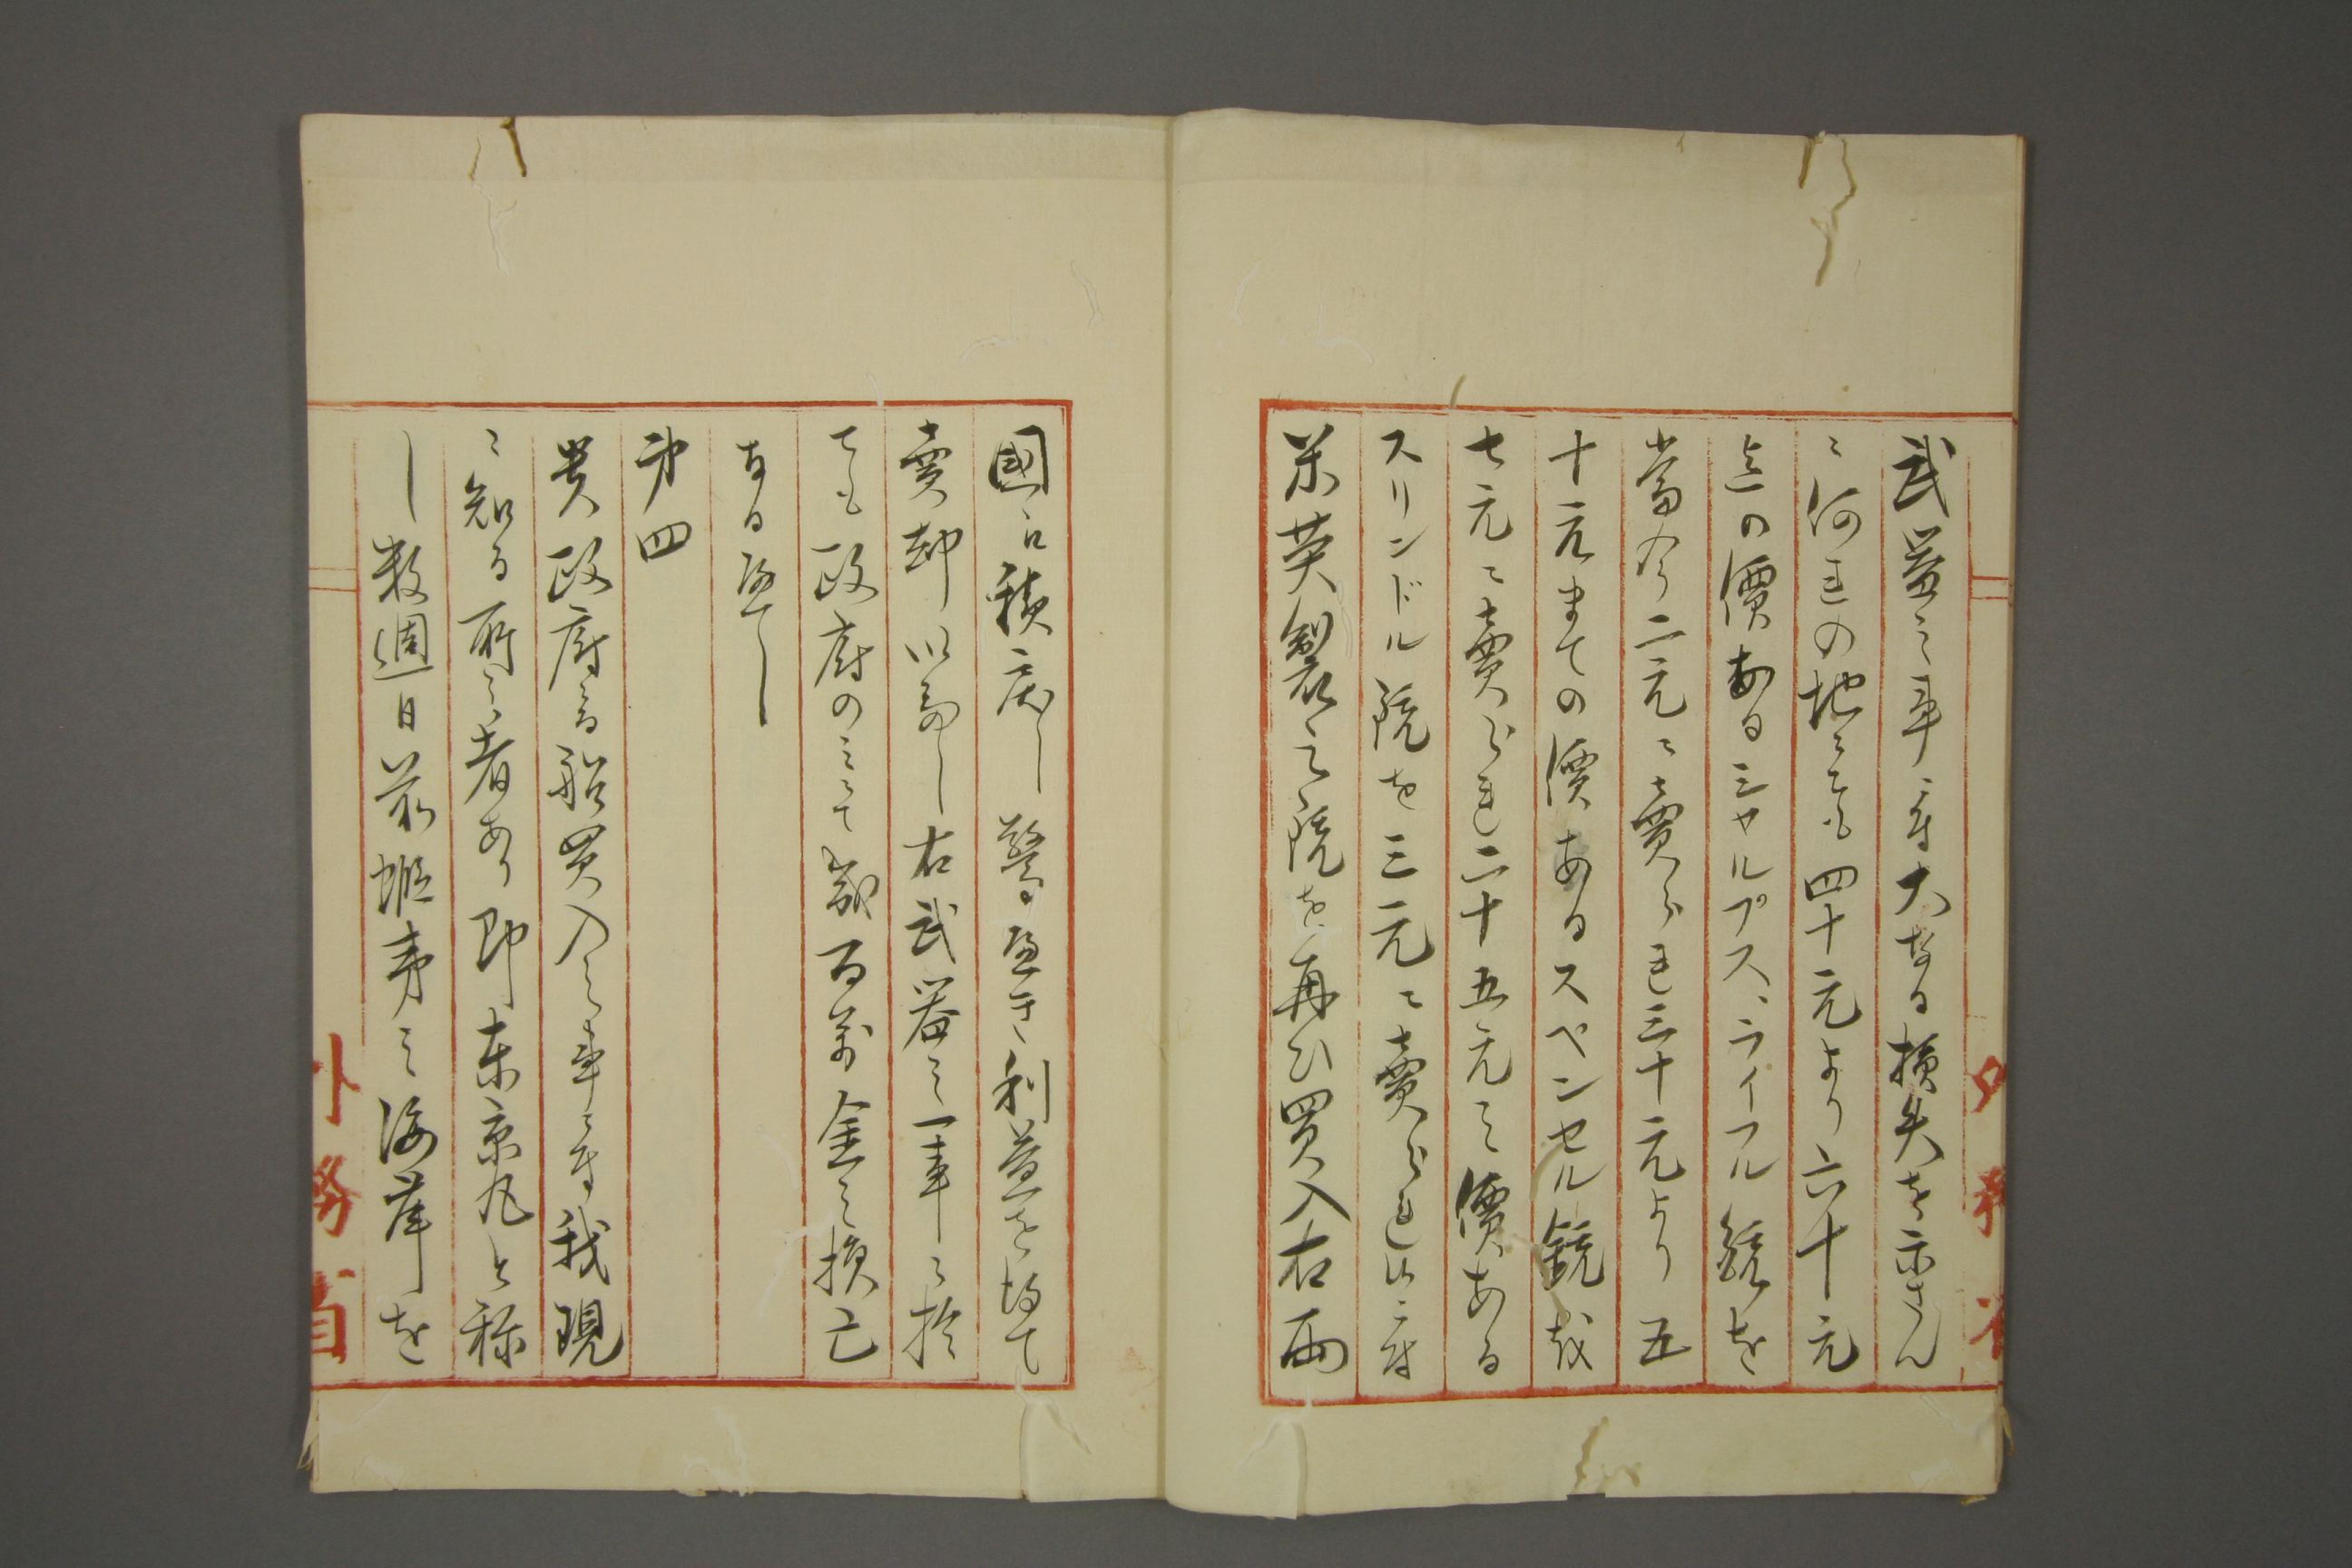 武器之事ニ付大なる損失を示さん
ニ何れの地ニても四十元より六十元
迄の價あるシャルプス、ライフル銃を
當今二元ニ賣られ三十元より五
十元まての價あるスペンセル銃を
七元ニ賣られ二十五元之價ある
スリンドル銃を三元ニ賣られ候ニ付
米英製之銃を再ひ買入右両
國に積戻し驚べき利益を得て
賣却いたし右武器之一事ニ於
ても政府のミにて数百萬金之損亡
なるべし
第四
貴政府ニ而船買入之事ニ付我現
ニ知る所之者あり即東京丸と称
し数週日前蝦夷之海岸を
外務省
外務省